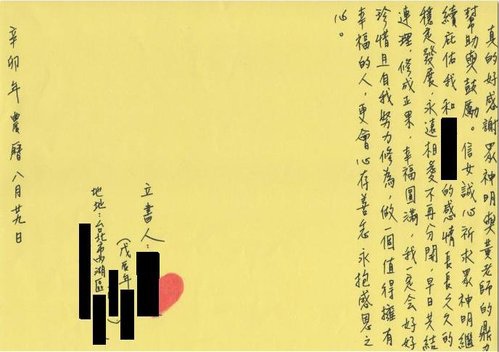 真的好感謝眾神明與黃老師的鼎力
幫助與鼓勵。信女誠心祈求眾神明繼
續庇佑我和 的感情長長久久的
穩定發展,永遠相愛不再分開,早日共結
連理,修成正果,幸福圓滿,我一定會好好
珍惜且自我努力修為,做一個值得擁有
幸福的人,更會心存善念永抱感恩之
心。
立書人:
(戊辰年
地址:台北市內湖區
辛卯年農曆八月廿九日